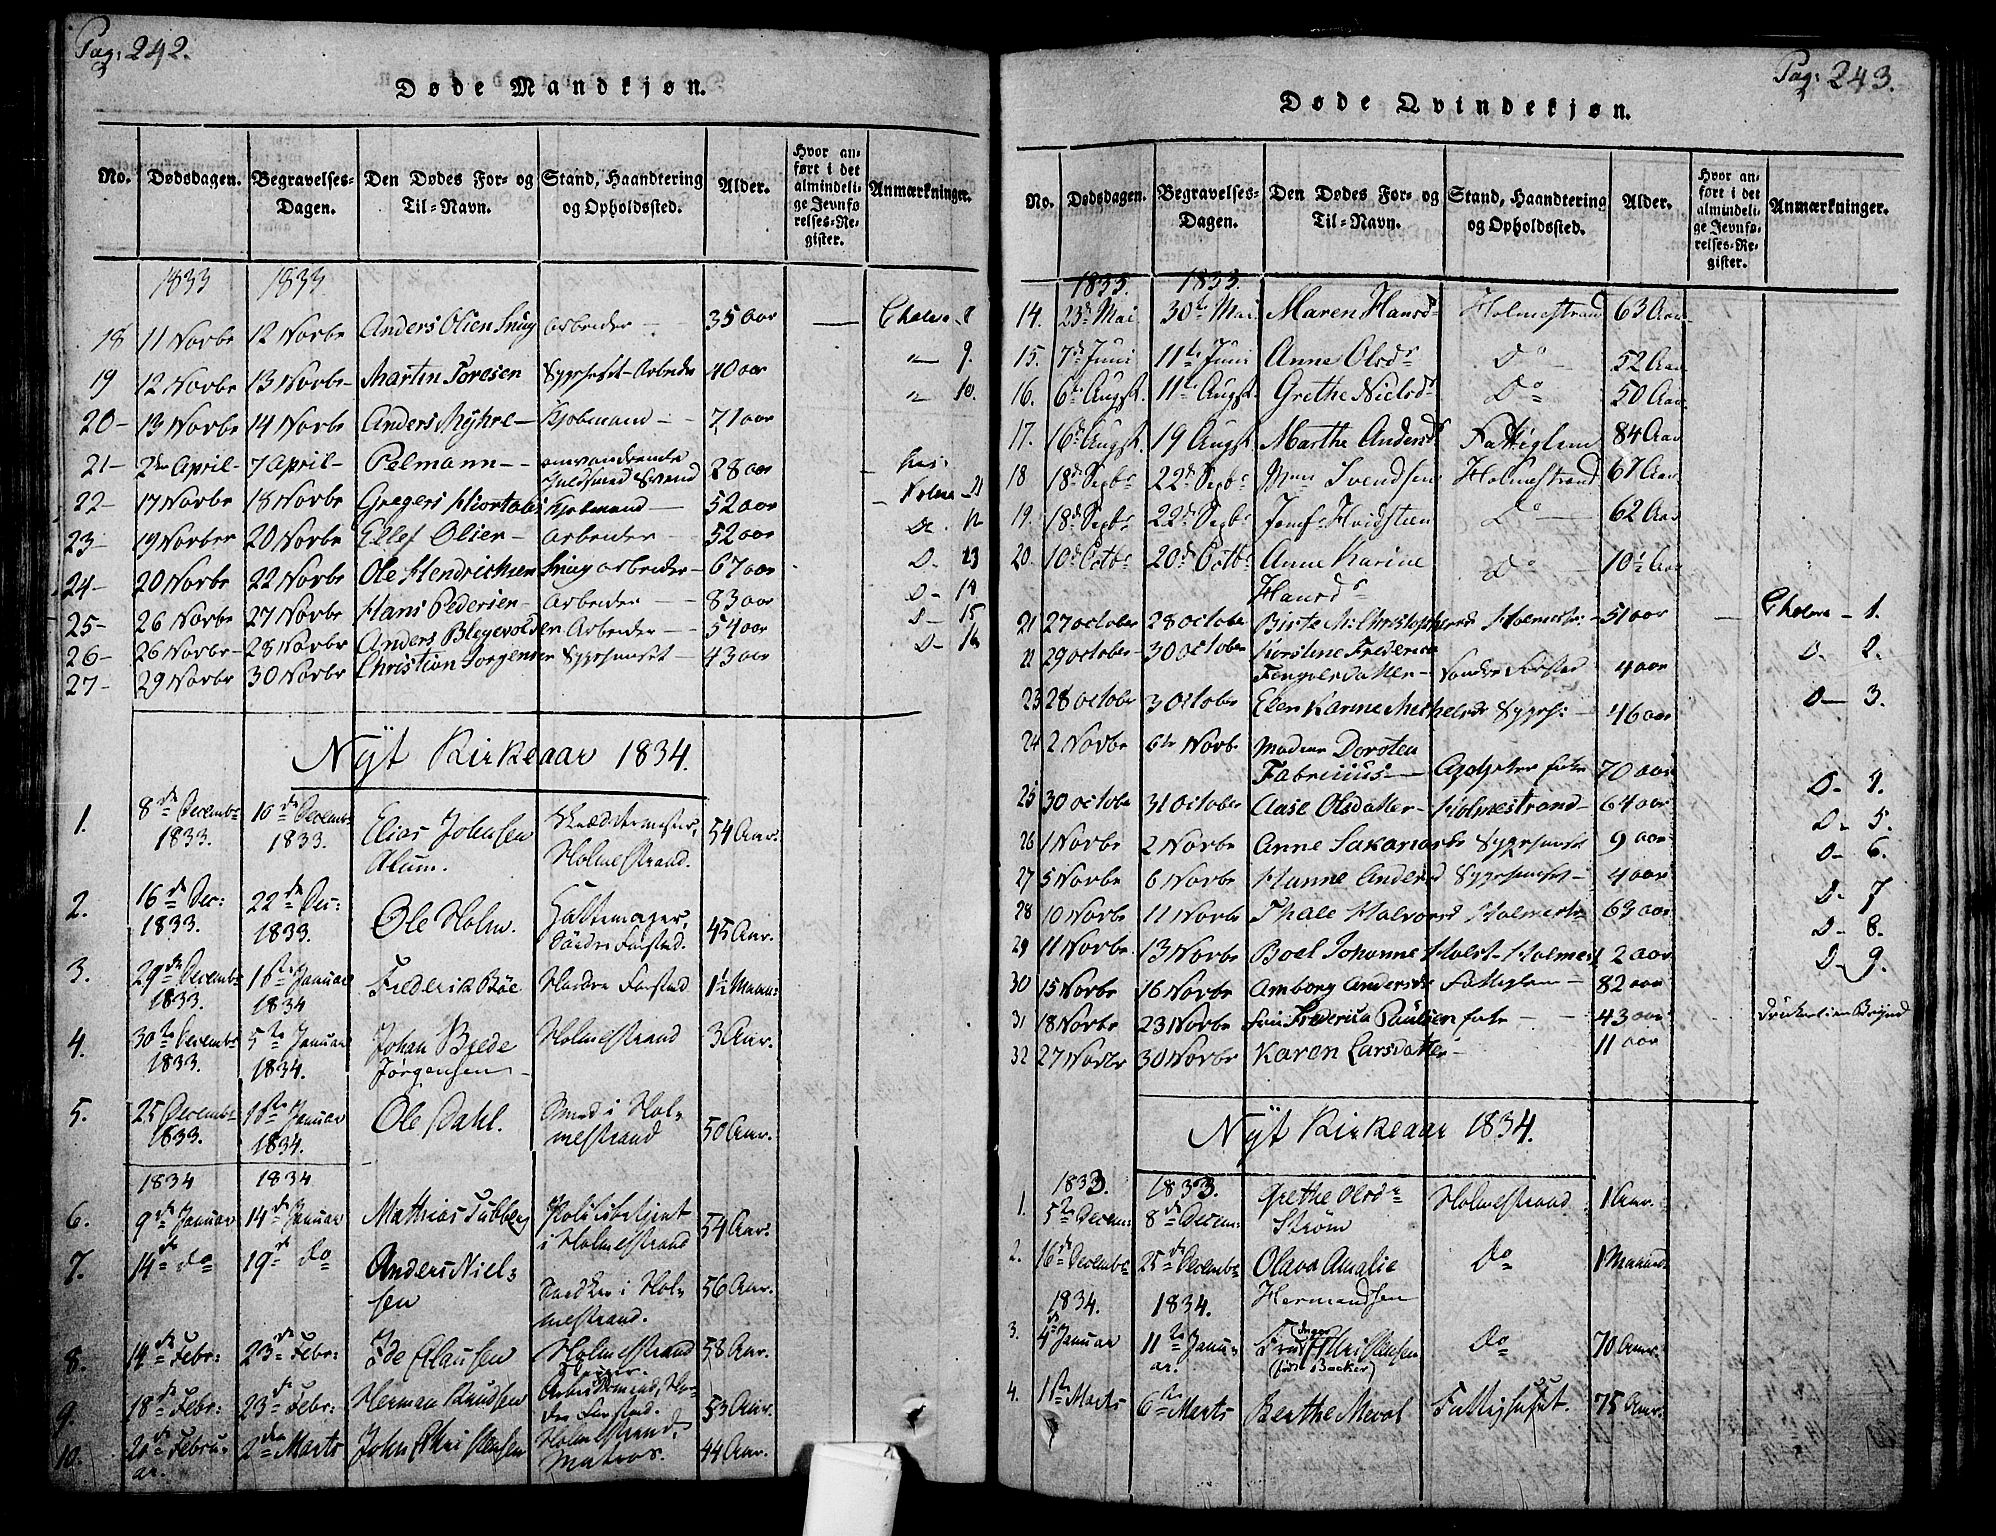 Pag: 242.
Døde Mandkjøn.
No. Dødsdagen. Begravelses-Dagen. Den Dødes For- og Til-Navn. Stand, Haandtering og Opholdssted. Alder. Hvor anført i det almindelige Jevnførelses-Register. Anmærkninger.
1833 1833
18 11 Novbr 12 Novbr Anders Olsen Snug Arbeider 35 aar
19 12 Novbr 13 Novbr Martin Toresen Arbeider 40 aar 9.
20 13 Novbr 14 Novbr Anders Myhre Kjobmand 71 aar 10.
21 2den April 7 April Pelmann 28 aar
22 17 Novbr 18 Novbr Gregers Kjobmand 52 aar
23 19 Novbr 20 Novbr Ellef Olsen Arbeider 52 aar D. 12
24 20 Novbr 22 Novbr Ole Hendrichsen Snug arbeider 67 aar D. 13
25 26 Novbr 27 Novbr Hans Pedersen Arbeider 83 aar D. 14
26 26 Novbr 28 Novbr Anders Arbeider 54 aar D. 15
27 29 Novbr 30 Novbr Christian Jorgensen 43 aar D. 16
Nyt Kirkeaar 1834.
1. 8de Decembr 1833. 10de Decembr 1833. Elias Johnsen Alum. Holmestrand. 54 Aar.
2. 16de Dec: 1833. 22de Dec: 1833. Ole Holm. Søndre Forstad. 45 Aar.
3. 29de Decembr 1833. 1ste Januar 1834 Frederik Bøe Nordre Forstad 1½ Maan:
4. 30te Decembr 1833. 5te Januar 1834. Johan Brede Jørgensen Holmestrand 3 Aar.
5. 25 Decembr 1833. 1ste Januar 1834. Ole Dahl. Smed i Holmestrand 50 Aar.
1834 1834
6. 9de Januar 14de Januar Mathias Tubberg Politibetjent i Holmestrand 54 Aar.
7. 14de do 19de do Anders Nielsen i Holmestrand. 56 Aar.
8. 14de Febr: 23de Febr: Clausen Holmestrand 58 Aar.
9. 18de Febr: 23de Febr: Herman Knudsen Forstad. 53 Aar.
10. Februar. 2den Marts John Christensen Holmestrand, Matros. 44 Aar.
Pag: 243.
Døde Qvindekjøn.
No. Dødsdagen. Begravelses-Dagen. Den Dødes For- og Til-Navn. Stand, Haandtering og Opholdssted. Alder. Hvor anført i det almindelige Jevnførelses-Register. Anmærkninger.
1833. 1833.
14. 23de Mai 30te Mai Maren Hansdr Holmestrand 63 Aar
15. 7de Juni 11te Juni Anne Olsdr Do 52 Aar
16. 6te Augst. 11te Augst. Grethe Nielsdr Do 50 Aar
17. 16de Augst 19 Augst. Marthe Andersdr Fattiglem 84 Aar
18 18de Septbr 22de Septbr Svendsen Holmestrand 67 Aar
19. 18de Septbr 22de Septbr Jomfr Hvidsteen Do 62 Aar
20. 10de Octbr 20de Octbr Anne Karine Hansdr Do 10½ Aar
21 27 october 28 october Birte M. Christophersd Holmestr: 51 aar Cholera 1.
29 october 30 october Kirstine Frederica Søndre Forstad 4 aar D. 2.
23 28 october 3 October Elen Karine 46 aar D. 3.
24 2 Novbr 6te Novbr Madame Dorotea Fabricius 70 aar
25 30 october 31 october Aase Olsdatter Holmestrand 64 aar D. 4.
26 1 Novbr 2 Novbr Anne Sygehuset 9 aar D. 5.
27 5 Novbr 6 Novbr Hanne Andersd Sygehuset 4 aar D. 6.
28 10 Novbr 11 Novbr Thale Halvorsd Holmestr 63 aar D. 7
29 11 Novbr 13 Novbr Boel Johanne Holst Holmest 2 aar D. 8.
30 15 Novbr 16 Novbr Amborg Andersdr Fattiglem 82 aar D. 9.
31 18 Novbr 23 Novbr Frederica Paulsen 43 aar
32 27 Novbr 30 Novbr Karen Larsdatter 11 aar
Nyt Kirkeaar 1834.
1833 1833.
1. 5te Decem: 8de Decem: Grethe Olsdr Strøm Holmestrand 1 Aar.
2. 16de Decembr 25de Decembr Olava Amalie Hermandsen Do 1 Maaned.
1834. 1834.
3. 4de Januar 11te Januar. Frue Inger Christensen (født Backer) Do 70 Aar.
4. 1ste Marts 6te Marts Berthe Fattighuset. 75 Aar.